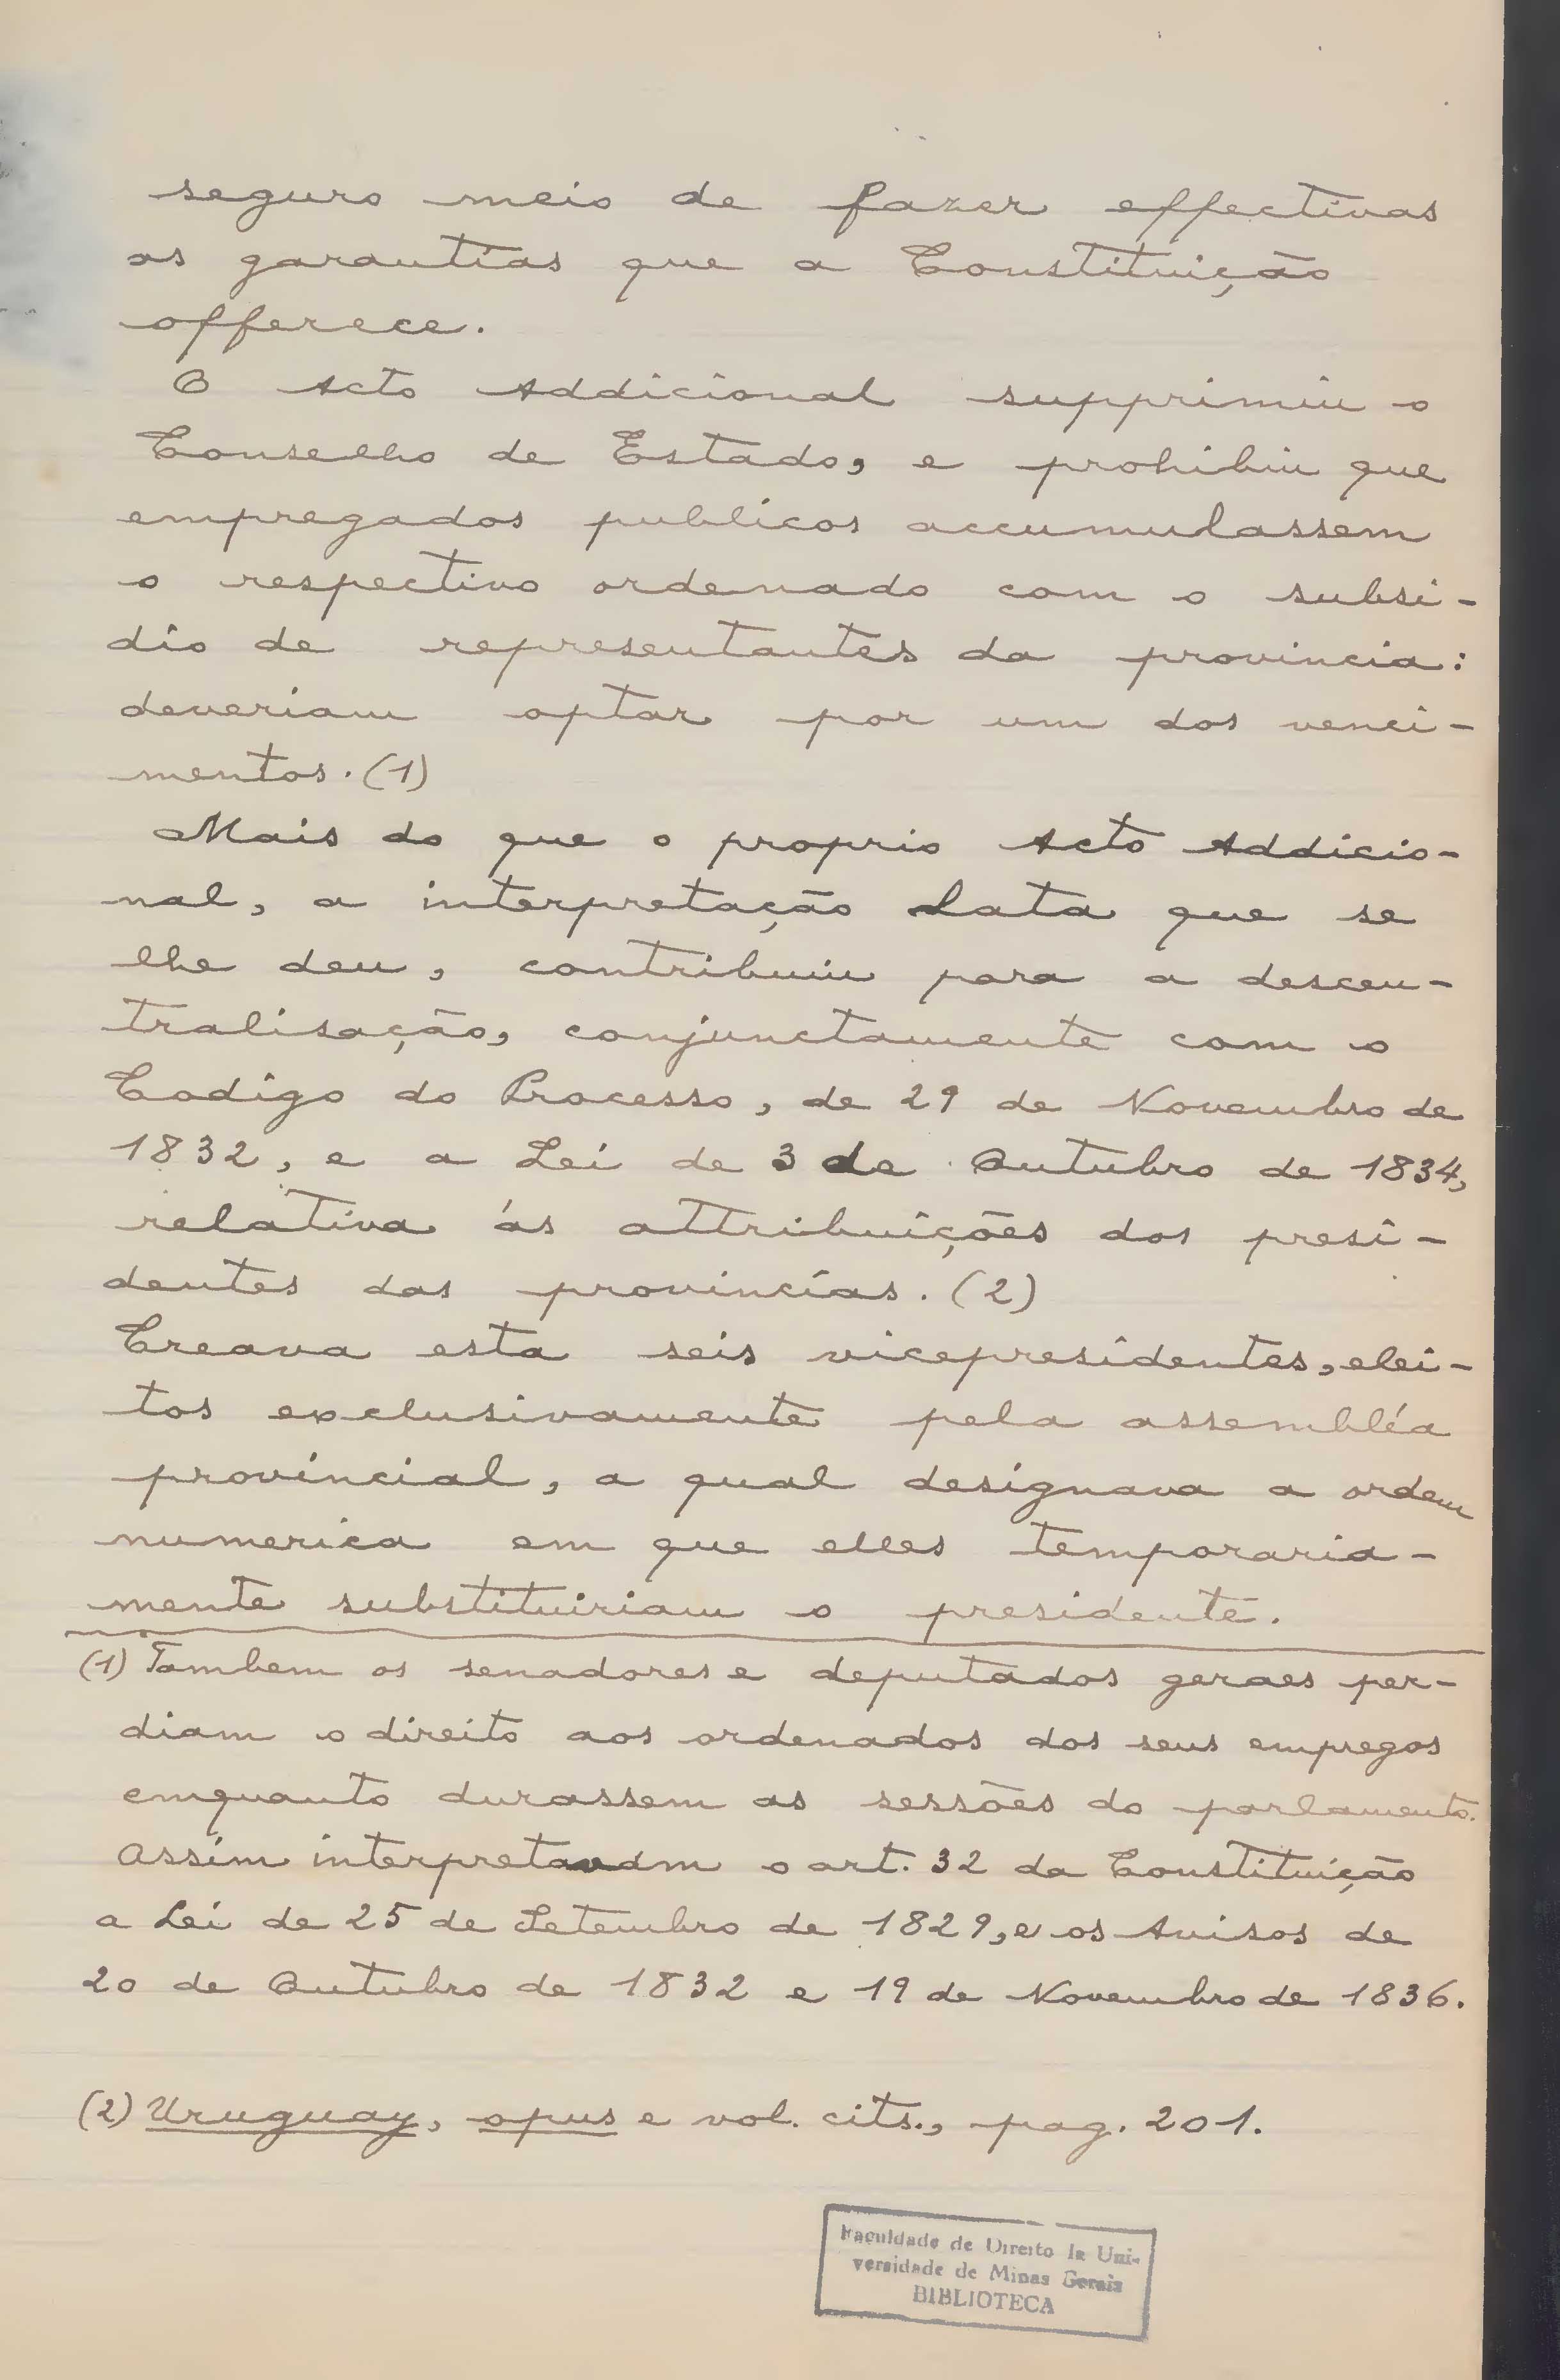 seguro meio de fazer effectivas
as garantias que a Constituição
offerece.
O Acto Addicional supprimiu o
Conselho de Estado, e prohibiu que
empregados publicos accumulassem
o respectivo ordenado com o subsi-
dio de representantes da provincia:
deveriam optar por um dos venci-
mentos. (1)
Mais do que o proprio Acto Addicio-
nal, a interpretação lata que se
lhe deu, contribuiu para a descen-
tralisação, conjunctamente com o
Codigo do Processo, de 29 de Novembro de
1832, e a Lei de 3 de Outubro de 1834,
relativa ás attribuições dos presi-
dentes das provincias. (2)
Creava esta seis vicepresidentes, elei-
tos exclusivamente pela assembléa
provincial, a qual designava a ordem
numerica em que elles temporaria-
mente substituiriam o presidente.
(1) Tambem os senadores e deputados geraes per-
diam o direito aos ordenados dos seus empregos
emquanto durassem as sessões do parlamento.
Assim interpretavam o art. 32 da Constituição
a Lei de 25 de Setembro de 1829, e os Avisos de
20 de Outubro de 1832 e 19 de Novembro de 1836.
(2) Uruguay, opus e vol. cits., pag. 201.
Faculdade de Direito da Uni-
versidade de Minas Gerais
BIBLIOTECA